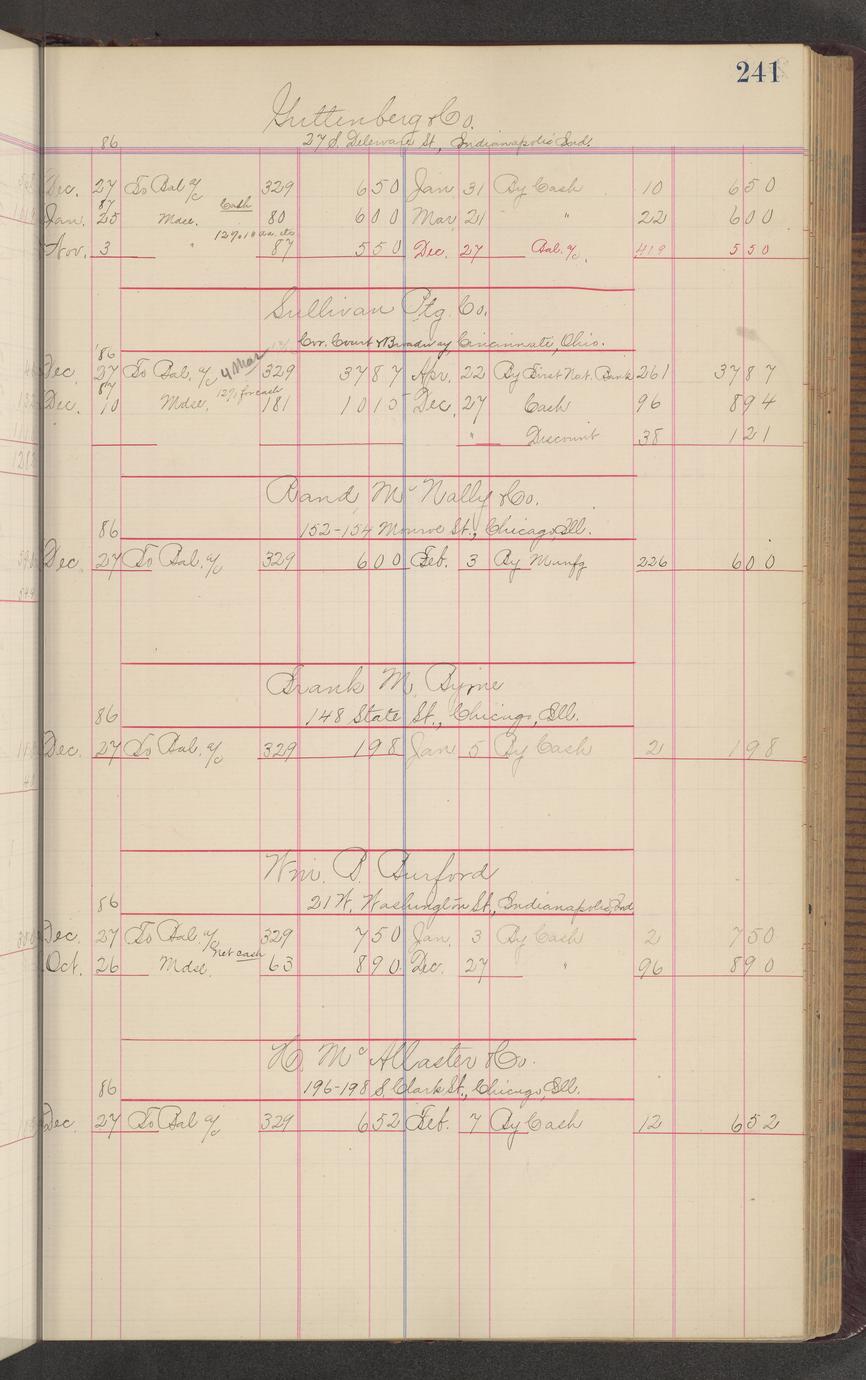 241
Guttenberg & Co.
86 27 S. Delaware St., Indianapolis Ind.
Dec. 27 To Bal a/c 329 650 Jan 31 By Cash 10 650
87 Cash
Jan. 25 Mdse. 80 600 Mar 21 " 22 600
12% 10
Nov. 3 " 87 550 Dec. 27 Bal. a/c. 419 550
Sullivan Ptg. Co.
'86 Cor. Court & Broadway, Cincinnate, Ohio.
Dec 27 To Bal. a/c 4 Mar 329 3787 Apr. 22 By First Nat. Bank 261 3787
87 12% for cash
Dec. 10 Mdse. 181 1015 Dec. 27 Cash 96 894
" Discount 38 121
Rand McNally & Co.
86 152-154 Monroe St., Chicago, Ill.
Dec. 27 To Bal. a/c 329 600 Feb. 3 By Munfg 226 600
Frank M. Byrne
86 148 State St., Chicago, Ill.
Dec. 27 To Bal. a/c 329 198 Jan 5 By Cash 2 198
Wm. B. Burford
86 21 W. Washington St., Indianapolis, Ind
Dec. 27 To Bal. a/c 329 750 Jan. 3 By Cash 2 750
Net cash
Oct. 26 Mdse. 63 890 Dec. 27 " 96 890
H. McAllaster & Co.
86 196-198 S. Clark St., Chicago, Ill.
Dec. 27 To Bal a/c 329 652 Feb. 7 By Cash 12 652